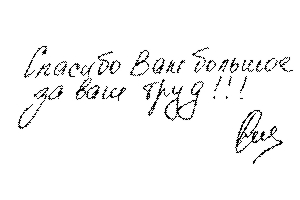 Спасибо Вам большое
за ваш труд!!!
Оля